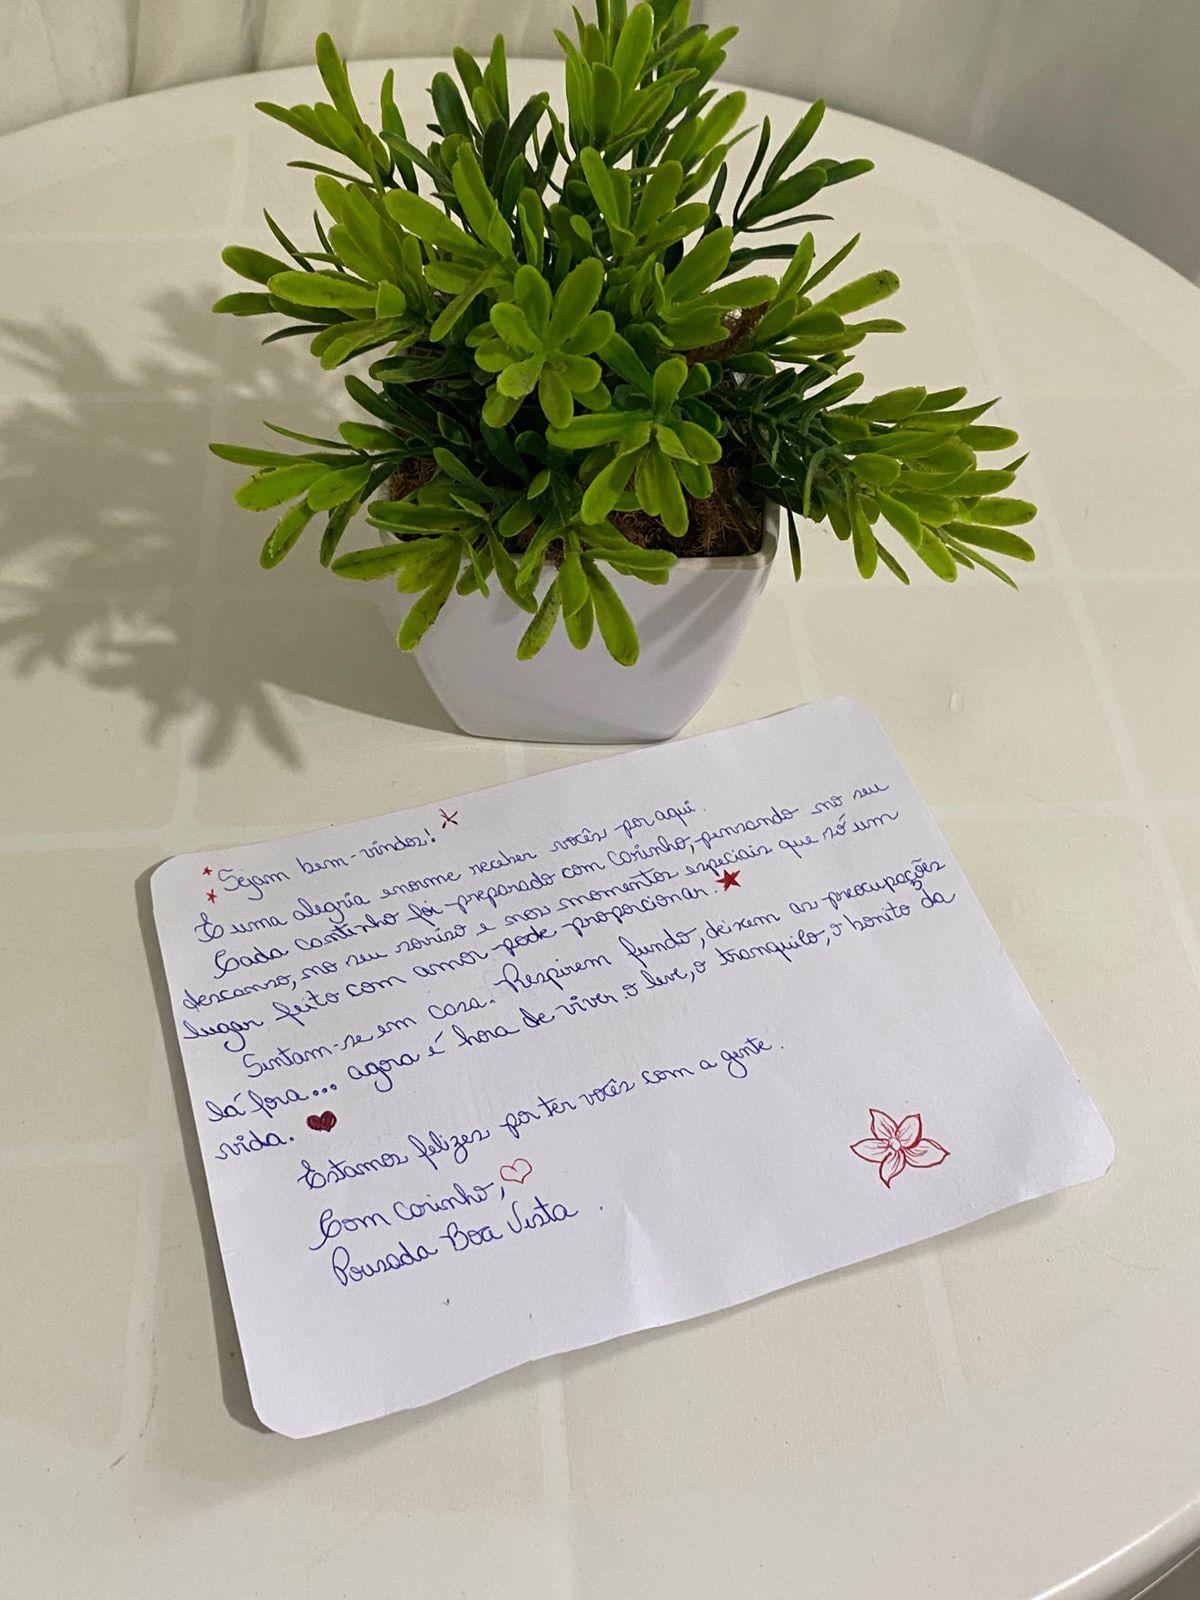 Sejam bem-vindos!
É uma alegria enorme receber vocês por aqui.
Cada cantinho foi preparado com carinho, pensando no seu
descanso, no seu sorriso e nos momentos especiais que só um
lugar feito com amor pode proporcionar.
Sintam-se em casa. Respirem fundo, deixem as preocupações
lá fora... agora é hora de viver o leve, o tranquilo, o bonito da
vida.
Estamos felizes por ter vocês com a gente.
Com carinho,
Pousada Boa Vista.